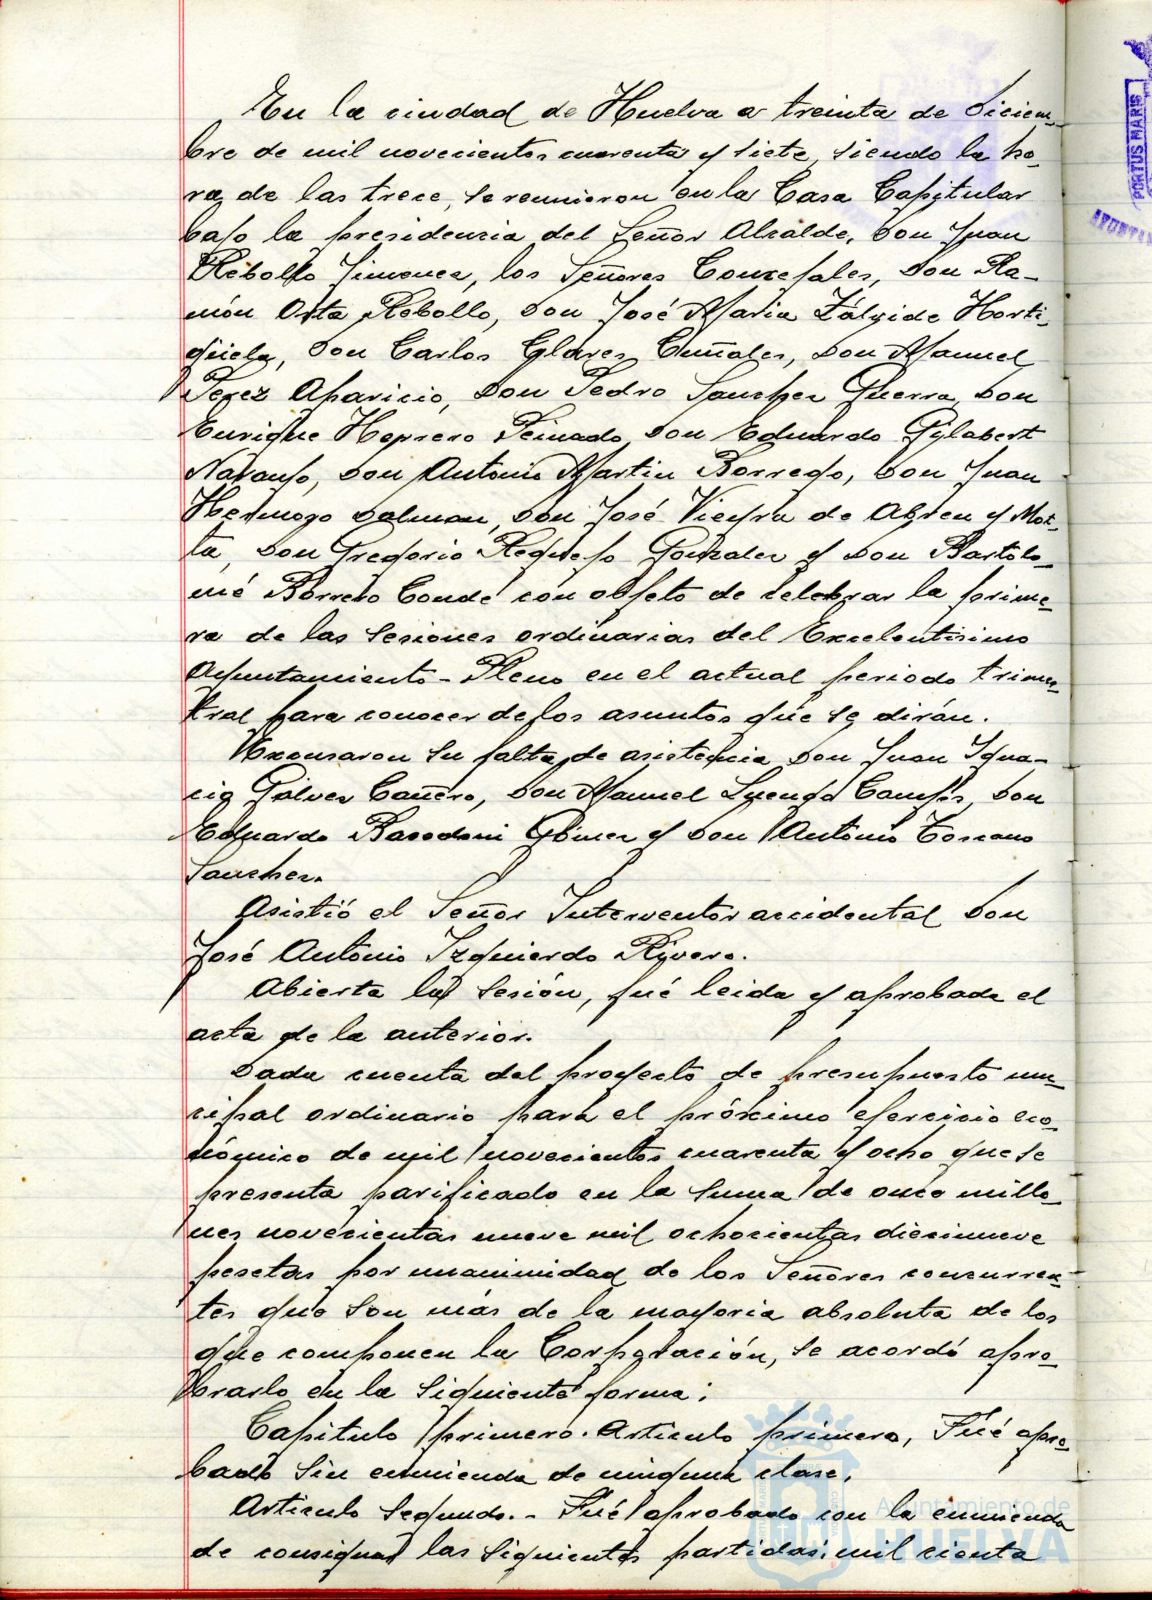 En la ciudad de Huelva a treinta de Diciem-
bre de mil novecientos cuarenta y siete, siendo la ho-
ra de las trece, se reunieron en la Casa Capitular
bajo la presidencia del Señor Alcalde, Don Juan
Rebollo Jimenez, los Señores Concejales, Don Ra-
món Orta Rebollo, Don José Maria Zálvide Horti-
güela, Don Carlos Don Manuel
Perez Aparicio, Don Pedro Sanchez Guerra, Don
Enrique Herrero Peinado, Don Eduardo Gylabert
Naranjo, Don Antonio Martin Borrego, Don Juan
Hermozo Dalman, Don José Vieyra de Abreu y Mot-
ta, Don Gregorio Requejo Gonzalez y Don Bartolo-
mé Borrero Conde con objeto de celebrar la prime-
ra de las sesiones ordinarias del Excelentisimo
Ayuntamiento-Pleno en el actual periodo trimes-
tral para conocer de los asuntos que se dirán.
Excusaron su falta de asistencia Don Juan Igna-
cio Galvez Cañero, Don Manuel Luengo Don
Eduardo Gómez y Don Antonio Toscano
Sanchez.
Asistió el Señor Interventor accidental Don
José Antonio Izquierdo Rivero.
Abierta la sesión, fué leida y aprobada el
acta de la anterior.
Dada cuenta del proyecto de presupuesto mu-
cipal ordinario para el próximo ejercicio eco-
nómico de mil novecientos cuarenta y ocho que se
presenta parificado en la suma de once millo-
nes novecientas nueve mil ochocientas diecinueve
pesetas por unanimidad de los Señores concurren-
tes que son más de la mayoria absoluta de los
que componen la Corporación, se acordó apro-
barlo en la siguiente forma:
Capitulo primero. Articulo primero, Fué apro-
bado sin enmienda de ninguna clase.
Articulo segundo.- Fué aprobado con la enmienda
de consignar las siguientes partidas: mil cienta
PORTUS MARIS
Ayuntamiento de
HUELVA